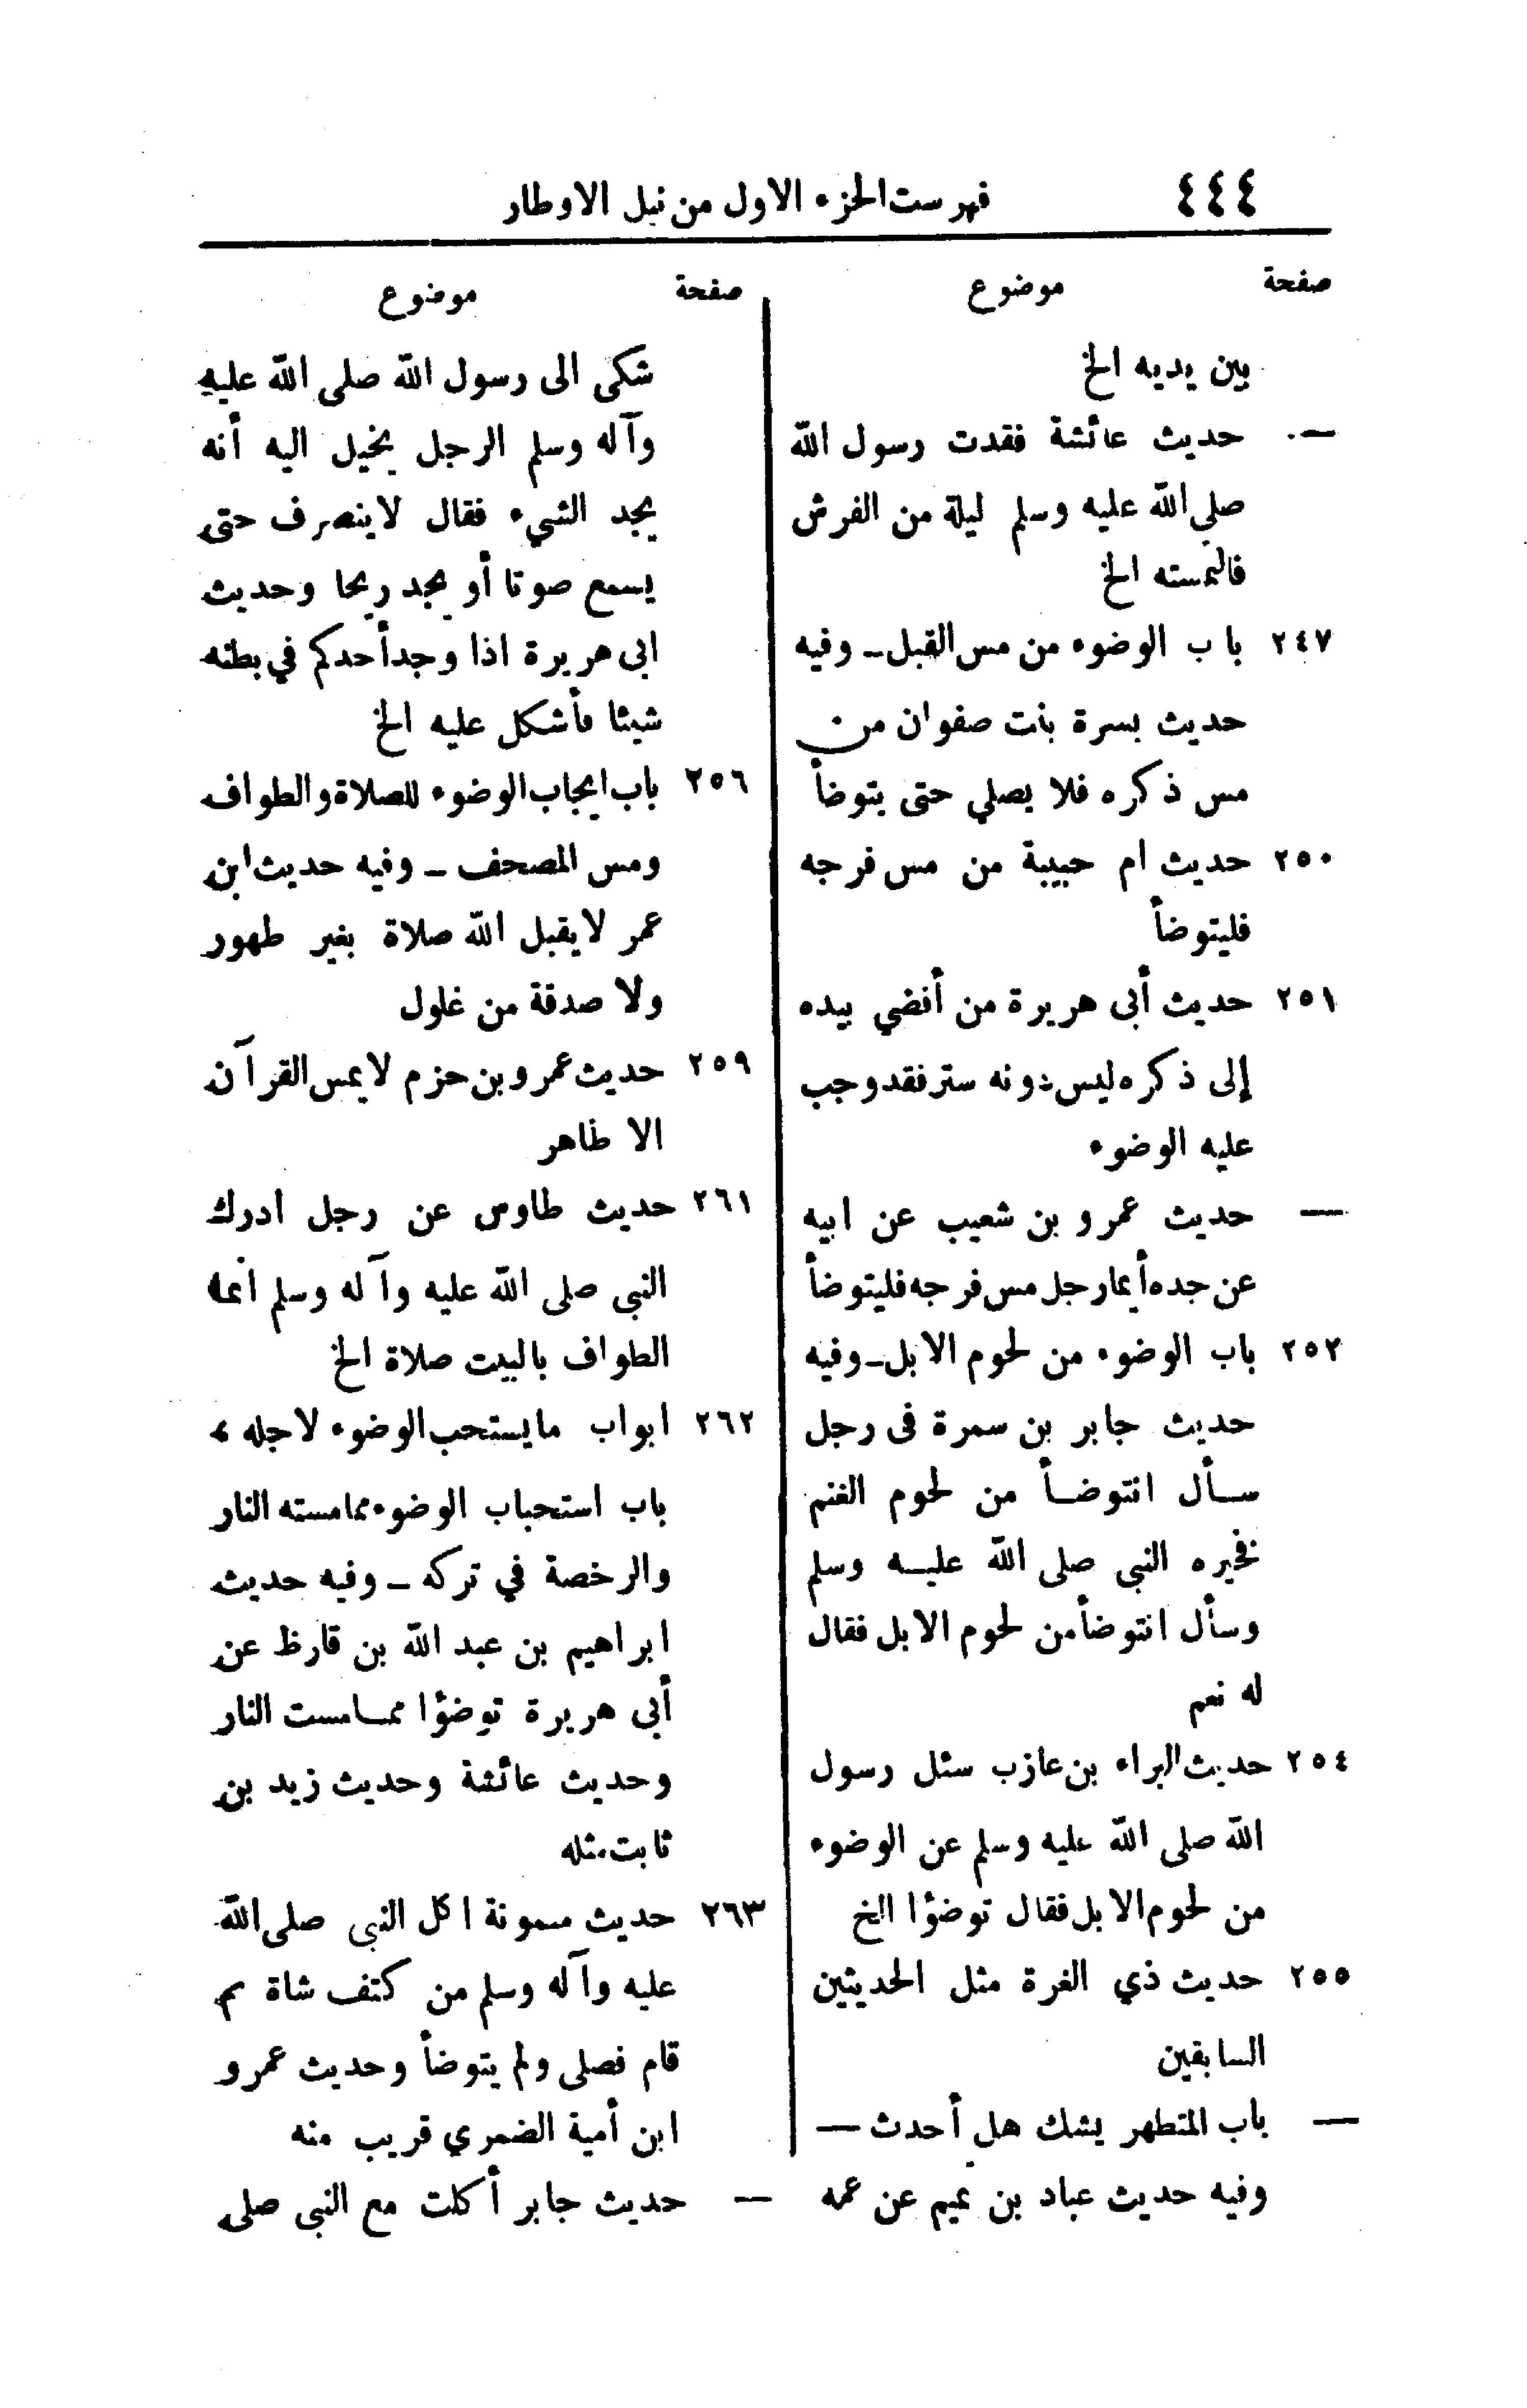 ٤٤٤ فهرست الجزء الاول من نيل الاوطار
صفحة موضوع
بين يديه الخ
— حديث عائشة فقدت رسول الله
صلى الله عليه وسلم ليلة من الفرش
فالتمسته الخ
٢٤٧ باب الوضوء من مس القبل - وفيه
حديث بسرة بنت صفوان من
مس ذكره فلا يصلي حتى يتوضأ
٢٥٠ حديث ام حبيبة من مس فرجه
فليتوضأ
٢٥١ حديث أبى هريرة من أفضي بيده
إلى ذكره ليس دونه ستر فقد وجب
عليه الوضوء
— حديث عمرو بن شعيب عن ابيه
عن جده أيما رجل مس فرجه فليتوضأ
٢٥٢ باب الوضوء من لحوم الابل - وفيه
حديث جابر بن سمرة فى رجل
سأل انتوضأ من لحوم الغنم
فخيره النبى صلى الله عليه وسلم
وسأل انتوضأ من لحوم الابل فقال
له نعم
٢٥٤ حديث البراء بن عازب سئل رسول
الله صلى الله عليه وسلم عن الوضوء
من لحوم الابل فقال توضؤا الخ
٢٥٥ حديث ذي الغرة مثل الحديثين
السابقين
— باب المتطهر يشك هل أحدث —
وفيه حديث عباد بن تميم عن عمه
صفحة موضوع
شكى الى رسول الله صلى الله عليه
وآله وسلم الرجل يخيل اليه أنه
يجد الشيء فقال لا ينصرف حتى
يسمع صوتا أو يجد ريحا وحديث
ابى هريرة اذا وجد أحدكم في بطنه
شيئا فأشكل عليه الخ
٢٥٦ باب ايجاب الوضوء للصلاة والطواف
ومس المصحف - وفيه حديث ابن
عمر لا يقبل الله صلاة بغير طهور
ولا صدقة من غلول
٢٥٩ حديث عمرو بن حزم لا يمس القرآن
الا طاهر
٢٦١ حديث طاوس عن رجل ادرك
النبى صلى الله عليه وآله وسلم انما
الطواف بالبيت صلاة الخ
٢٦٢ ابواب ما يستحب الوضوء لاجله ،
باب استحباب الوضوء مما مسته النار
والرخصة في تركه - وفيه حديث
ابراهيم بن عبد الله بن قارظ عن
أبى هريرة توضؤا مما مست النار
وحديث عائشة وحديث زيد بن
ثابت مثله
٢٦٣ حديث ميمونة اكل النبى صلى الله
عليه وآله وسلم من كتف شاة ثم
قام فصلى ولم يتوضأ وحديث عمرو
ابن أمية الضمري قريب منه
— حديث جابر أكلت مع النبى صلى